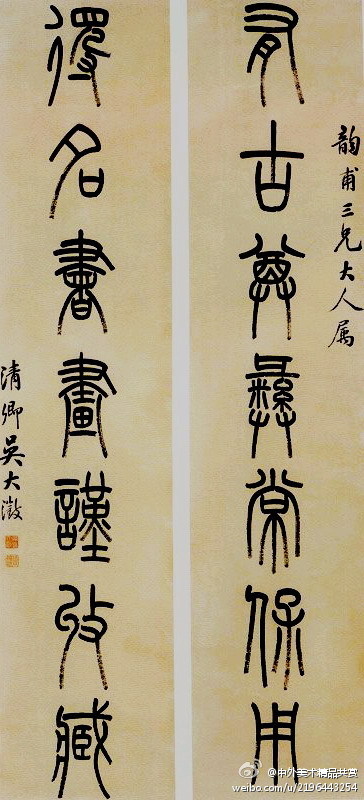 韵甫三兄大人属
有古尊彝常保用
得名書畫謹收藏
清卿吳大澂
@中外美术精品共赏
weibo.com/u/2196443254